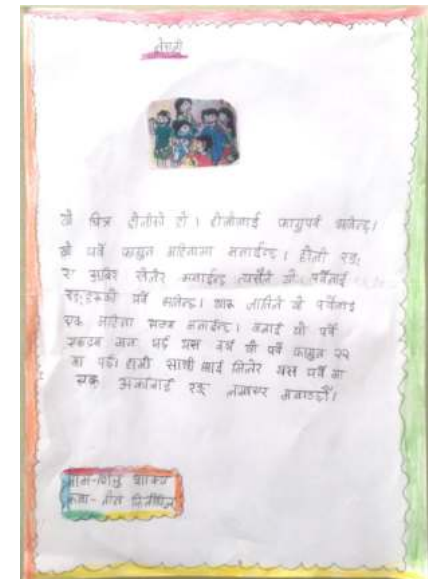 होली
यो चित्र होलीको हो। होलीलाई फागुपर्व भनिन्छ।
यो पर्व फागुन महिनामा मनाईन्छ। होली रङ्ग
र अबिर खेलेर मनाईन्छ त्यसैले यो पर्वलाई
रङ्गहरूको पर्व भनिन्छ। थारू जातिले यो पर्वलाई
एक महिना सम्म मनाईन्छ। मलाई यो पर्व
एकदम मन पर्छ यस वर्ष यो पर्व फागुन २२
मा पर्छ। हामी साथी भाई मिलेर यस पर्व मा
एक अर्कालाई रङ्ग लगाएर मनाउछौं।
नाम- शाक्य
कक्षा- तीन